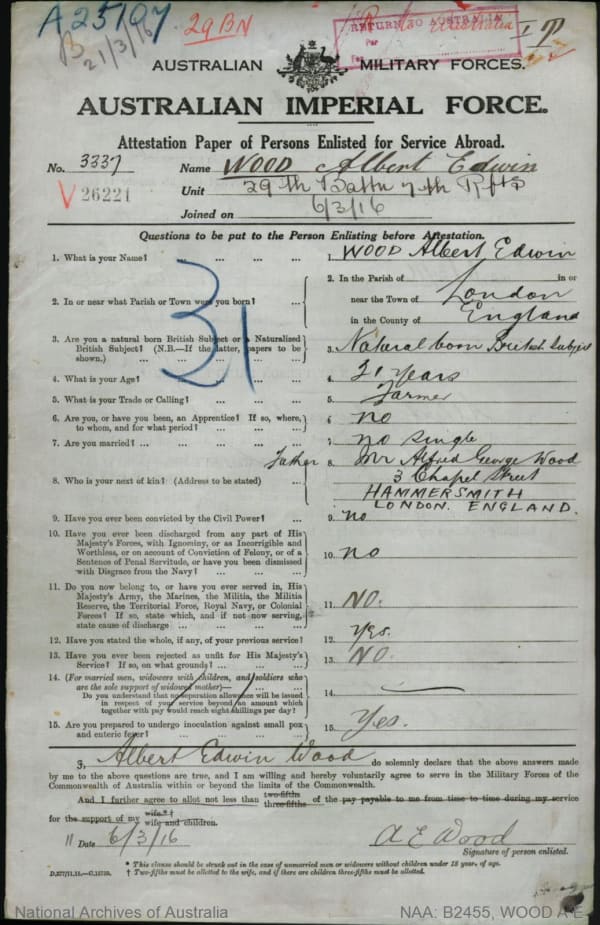 A25197 29 BN
21/3/16
RETURN TO AUSTRALIA
AUSTRALIAN MILITARY FORCES.
AUSTRALIAN IMPERIAL FORCE.
Attestation Paper of Persons Enlisted for Service Abroad.
No. 3337 Name WOOD Albert Edwin
V 26221 Unit 29th Battn 7th Rfts
Joined on 6/3/16
Questions to be put to the Person Enlisting before Attestation.
1. What is your Name? ... ... ... ... 1. WOOD Albert Edwin
2. In or near what Parish or Town were you born? ... 2. In the Parish of in or
near the Town of London
in the County of England
31
3. Are you a natural born British Subject or a Naturalized
British Subject? (N.B.—If the latter, papers to be
shown.) ... ... ... ... 3. Natural born British Subject
4. What is your Age? ... ... ... ... 4. 21 years
5. What is your Trade or Calling? ... ... ... 5. Farmer
6. Are you, or have you been, an Apprentice? If so, where,
to whom, and for what period? ... ... ... 6 no
7. Are you married? ... ... ... ... 7 no single
8. Who is your next of kin? (Address to be stated) ... Father 8. Mr Alfred George Wood
3 Chapel Street
HAMMERSMITH
LONDON. ENGLAND.
9. Have you ever been convicted by the Civil Power? ... 9. no
10. Have you ever been discharged from any part of His
Majesty's Forces, with Ignominy, or as Incorrigible and
Worthless, or on account of Conviction of Felony, or of a
Sentence of Penal Servitude, or have you been dismissed
with Disgrace from the Navy? ... ... ... 10. no
11. Do you now belong to, or have you ever served in, His
Majesty's Army, the Marines, the Militia, the Militia
Reserve, the Territorial Force, Royal Navy, or Colonial
Forces? If so, state which, and if not now serving,
state cause of discharge ... ... ... ... 11. NO.
12. Have you stated the whole, if any, of your previous service? 12. yes.
13. Have you ever been rejected as unfit for His Majesty's
Service? If so, on what grounds? ... ... 13. NO
14. (For married men, widowers with children, and soldiers who
are the sole support of widowed mother)—
Do you understand that no separation allowance will be issued
in respect of your service beyond an amount which
together with pay would reach eight shillings per day? 14.
15. Are you prepared to undergo inoculation against small pox
and enteric fever? ... ... ... ... 15. Yes.
I, Albert Edwin Wood do solemnly declare that the above answers made
by me to the above questions are true, and I am willing and hereby voluntarily agree to serve in the Military Forces of the
Commonwealth of Australia within or beyond the limits of the Commonwealth.
And I further agree to allot not less than two-fifths three-fifths of the pay payable to me from time to time during my service
for the support of my wife* † wife and children.
Date 6/3/16 A E Wood
Signature of person enlisted.
* This clause should be struck out in the case of unmarried men or widowers without children under 18 years of age.
† Two-fifths must be allotted to the wife, and if there are children three-fifths must be allotted.
National Archives of Australia NAA: B2455, WOOD A E